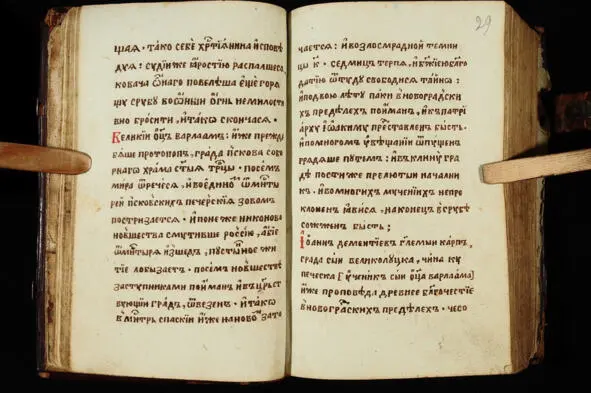 щая · тако себе хр҃тїѧнина исповѣ
дуя : судїи же ꙗростїю распалшесѧ
ковача ѻнаго повелѣша еще горѧ
щу срубу во ѻныи огнь немилости
вно бросити , и такѡ скончасѧ ·
Великїи ѻц҃ъ варлаамъ : иже прежде
бѧше протопопъ , града пскова собо
рнаго храма с҃тыѧ трⷪ҇цы · посемъ
мира ѿречесѧ , и во едино ѿ мн҃ты
реи псковскихъ печерскїѧ зовомъ
постризаетсѧ · и понеже никонова
новшества смутивше россїю , абїе
ѿ мн҃тырѧ изшедъ , пустынное жи
тїе лобызаетъ · посемъ новшествъ
заступниками поиманъ и въ црⷭ҇тв
вующїи градъ , ѿвезенъ · и такѡ
в мн҃трь спаскїи иже на новоⷨ зато
29
чаетсѧ : и во злосмрадной темни
цы к҃ · седмицъ терпѧ , и бж҃їею бл҃го
датїю ѿтуду свободисѧ таинѡ :
и по двою лѣту паки в новоградски
хъ предѣлехъ поиманъ , и къ патрї
арху їоакиму преⷣставленъ бысть ·
и по многомъ увѣщанїи ѿпущенъ
грѧдѧше путемъ : и въ клину гра
дѣ постиже прелютыи начални
къ · и во многихъ мученїихъ непре
клоненъ ꙗвисѧ , наконецъ в срубѣ
сожженъ бысть ;
Їоаннъ дементїевъ гл҃емыи карпъ ,
града сыи великолуцка , чина ку
печеска [ ученикъ сыи ѻц҃а варлаама ]
иже проповѣда древнее бл҃гочестїе
в новограⷣскихъ предѣлехъ · чесо